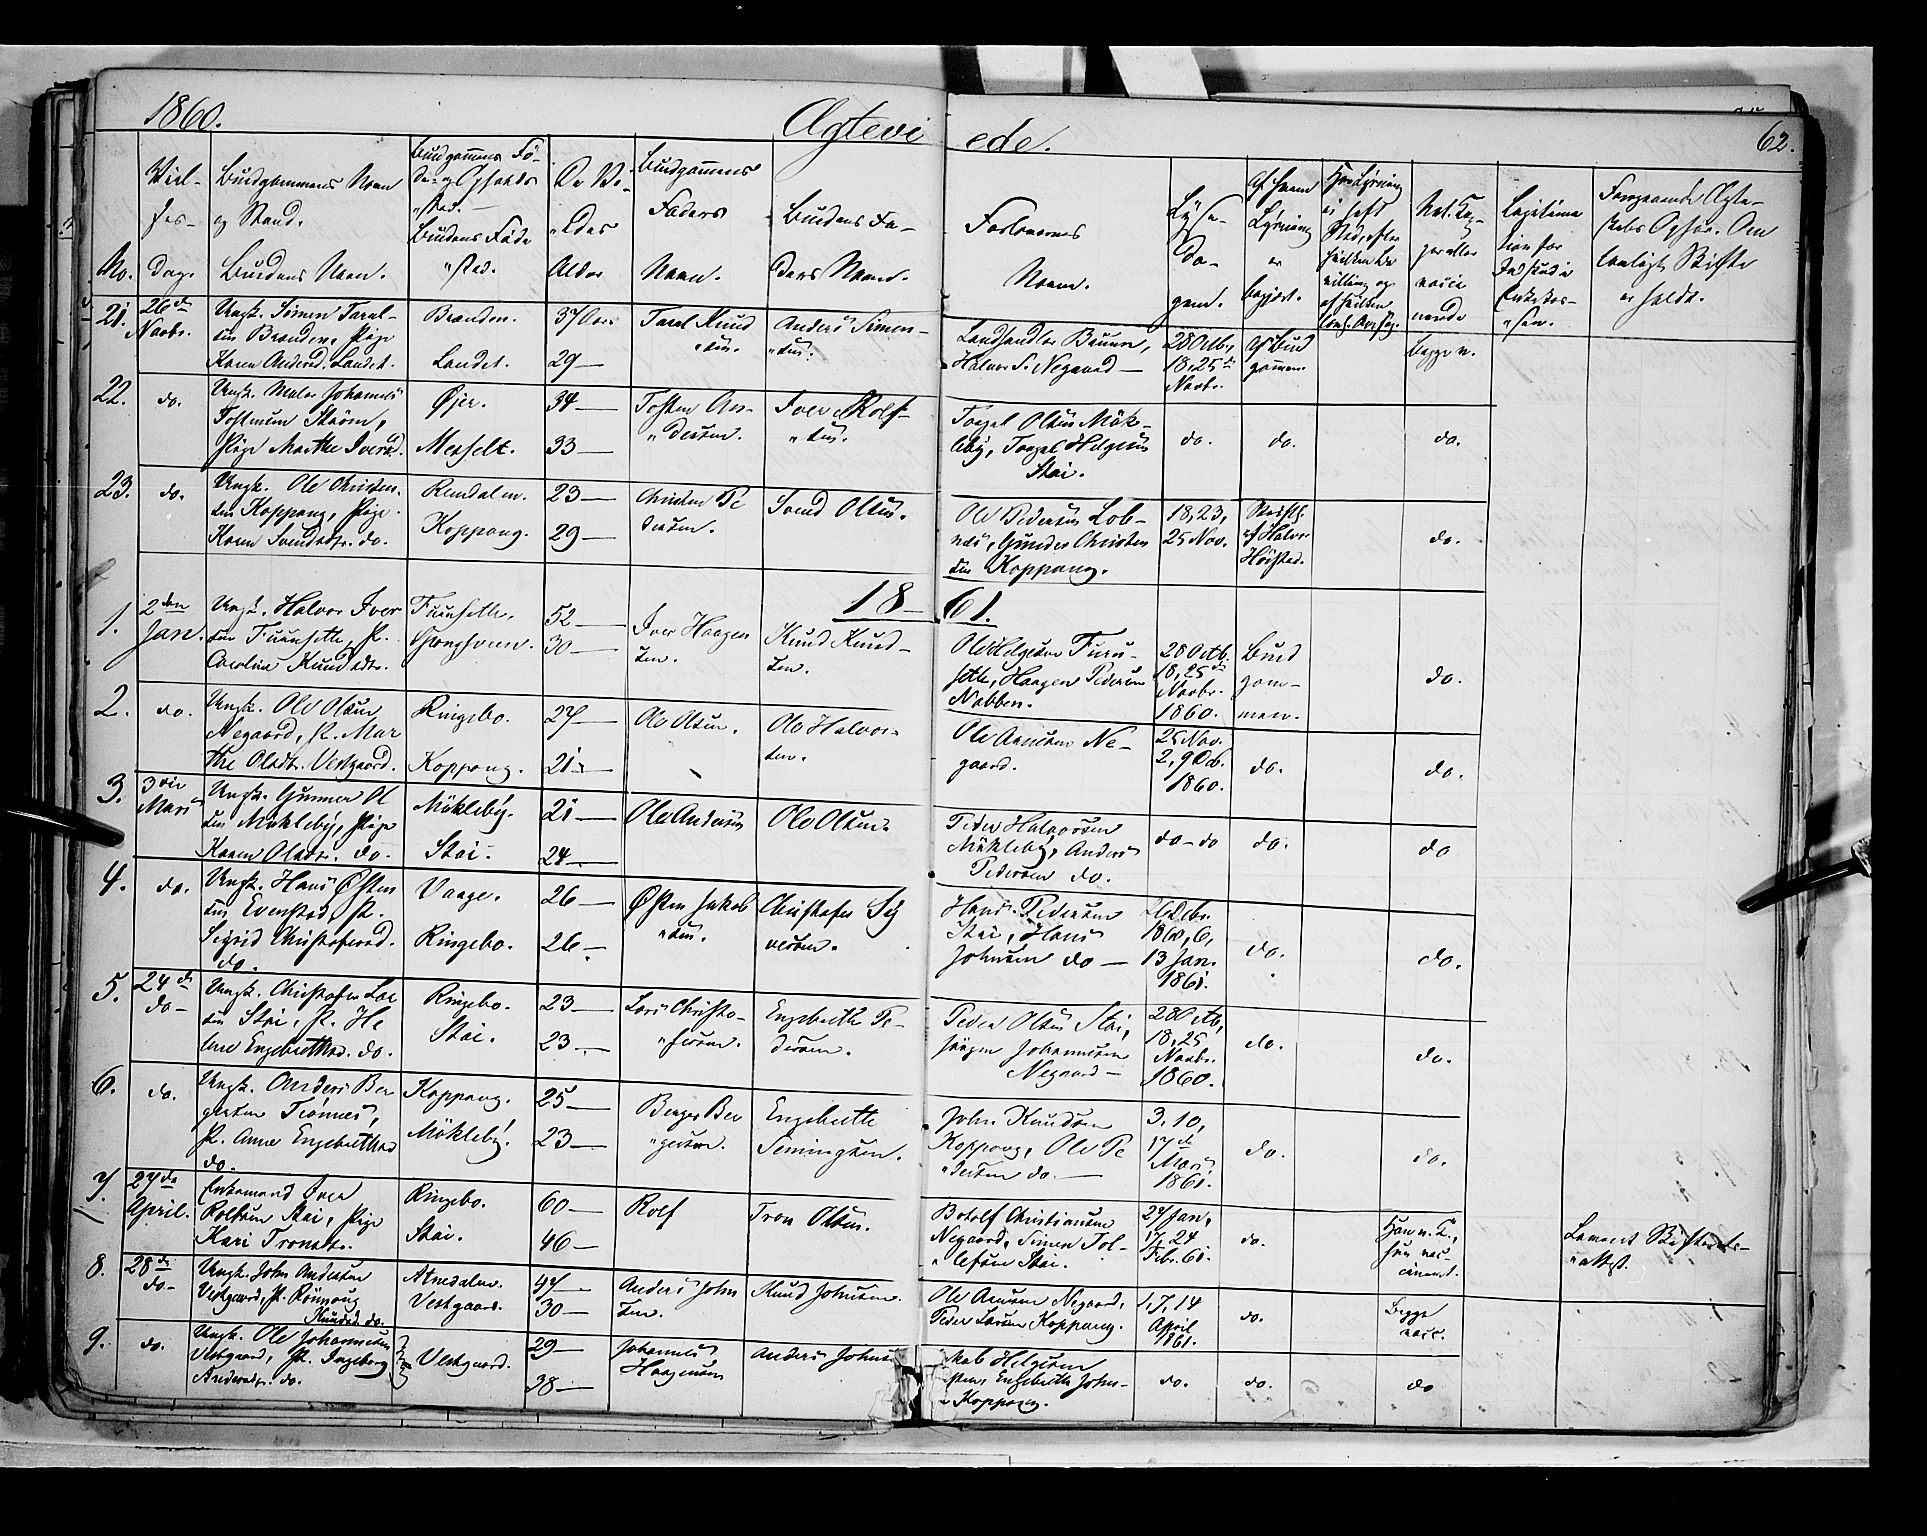 1860.
Ægtevi
ede.
62.
No.
Viel-
ses-
Dag.
Brudgommens Navn
og Stand.
Brudens Navn.
Brudgommens Fö-
de- og Opholds
"sted.
Brudens Föde
"sted.
De Vi-
"edes
Alder
Brudgommens
Faders
Navn.
Brudens Fa-
ders Navn.
Forlovernes
Navn.
Lysn.
Da-
gene.
Af hvem
Lysning
er
begjert.
Nat. Kop-
per eller
vacci
nerede
Foregaaende Ægte-
skabs Ophör. Om
lovligt Skifte
er holdt.
21.
26de
Novbr.
Ungk. Simen Taral-
sen Branden, Pige
Karen Andersd. Landet.
Branden.
Landet.
37 Aar
29 —
Taral Knud
"sen.
Anders Simen-
"sen.
Landhandler Bruun,
Halvor S. Negaard —
28 Octbr.,
18, 25de
Novbr.
Af Brud
gommen.
begge n.
22.
do.
Ungk. Maler Johannes
Tostensen Ström,
Pige Marthe Iversd.
Øier.
Messelt.
34 —
33 —
Tosten An-
"dersen.
Iver Rolf-
"sen.
Torgel Olsen Mök-
leby, Torgel Helgesen
Stai.
do.
do.
do.
23.
do.
Ungk. Ole Christen-
sen Koppang, Pige
Karen Svendsdtr. do.
Rendalen.
Koppang.
23 —
29 —
Christen Pe
dersen.
Svend Olsen.
Ole Pedersen Lob-
næs, Gunder Christen
sen Koppang.
18, 23,
25 Nov.
af Halvor
do.
18—
61.
1.
2den
Jan.
Ungk. Halvor Iver
sen Furusethe, P.
Caroline Knudsdtr.
Furusethe.
52 —
30 —
Iver Haagen
sen.
Knud Knud-
sen.
Ole Helgesen Furu-
sethe, Haagen Pedersen
Nabben.
28 Octb.
18, 25de
Novbr.
1860.
Brud
gom-
men.
do.
2.
do.
Ungk. Ole Olsen
Negaard, P. Mar
the Olsdtr. Vestgaard.
Ringebo.
Koppang.
27 —
21 —
Ole Olsen.
Ole Halvor-
sen.
Ole Arnesen Ne-
gaard.
25 Nov.
2, 9 Dcb.
1860.
do.
do.
3.
3die
Mars
Ungk. Gunner Ol
sen Mökleby, Pige
Karen Olsdtr. do.
Mökleby.
Stai.
21 —
24 —
Ole Andersen
Ole Olsen.
Peder Halvorsen
Mökleby, Anders
Pedersen do.
do — do
do.
do
4.
do.
Ungk. Hans Østen
sen Evenstad, P.
Sigrid Christofersd.
do.
Vaage.
Ringebo.
26 —
26 —
Østen Jakob
"sen.
Christofer Sy
versen.
Hans Pedersen
Stai, Hans
Johnsen do —
26 Dcbr.
1860, 6,
13 Jan.
1861.
do.
do.
5.
24de
do —
Ungk. Christofer Lar
sen Stai, P. He
lene Engebrethsd. do.
Ringebo.
Stai.
23 —
23 —
Lars Christo-
"fersen.
Engebreth Pe-
dersen.
Peder Olsen Stai,
Jörgen Johannesen
Negaard —
28 Octb.,
18, 25
Novbr.
1860.
do.
do.
6.
do.
Ungk. Anders Ber
gersen Trönnes,
P. Anne Engebrethsd
do.
Koppang.
Mökleby.
25 —
23 —
Berger Ber
"gersen.
Engebreth
Simingsen.
John Knudsen
Koppang, Ole Pe
"dersen do. —
3, 10,
17de
Mars
1861.
do.
do.
7.
27de
April.
Enkemand Iver
Rolfsen Stai, Pige
Kari Tronsdtr.
Ringebo.
Stai.
60 —
46 —
Rolf
Tron Olsen.
Botolf Christiansen
Negaard, Simen Tol-
"lefsen Stai.
27 Jan,
17, 24
Febr. 61.
do.
Han n. K.,
hun vac-
cineret.
Lensmd Skifterets-
"attest.
8.
28de
do —
Ungk. John Andersen
Vestgaard, P. Rönnaug
Knudsd. do.
Atnedalen.
Vestgaard.
47 —
30 —
Anders John
sen.
Knud Johnsen.
Ole Arnesen Negaard,
Peder Larsen Koppang.
1, 7, 14
April
1861.
do.
Begge
vacc.
9.
do.
Ungk. Ole Johannesen
Vestgaard, P. Ingeborg
Andersdtr. do.
Vestgaard.
29 —
38 —
Johannes
Haagensen
Anders Johnse
Helgesen
Engebreth John-
Koppang.
do.
do.
do